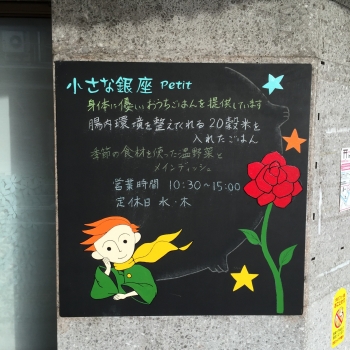 小さな銀座 Petit
身体に優しいおうちごはんを提供しています
腸内環境を整えてくれる20穀米を
入れたごはん
季節の食材を使った温野菜と
メインディッシュ
営業時間 10:30~15:00
定休日 水・木